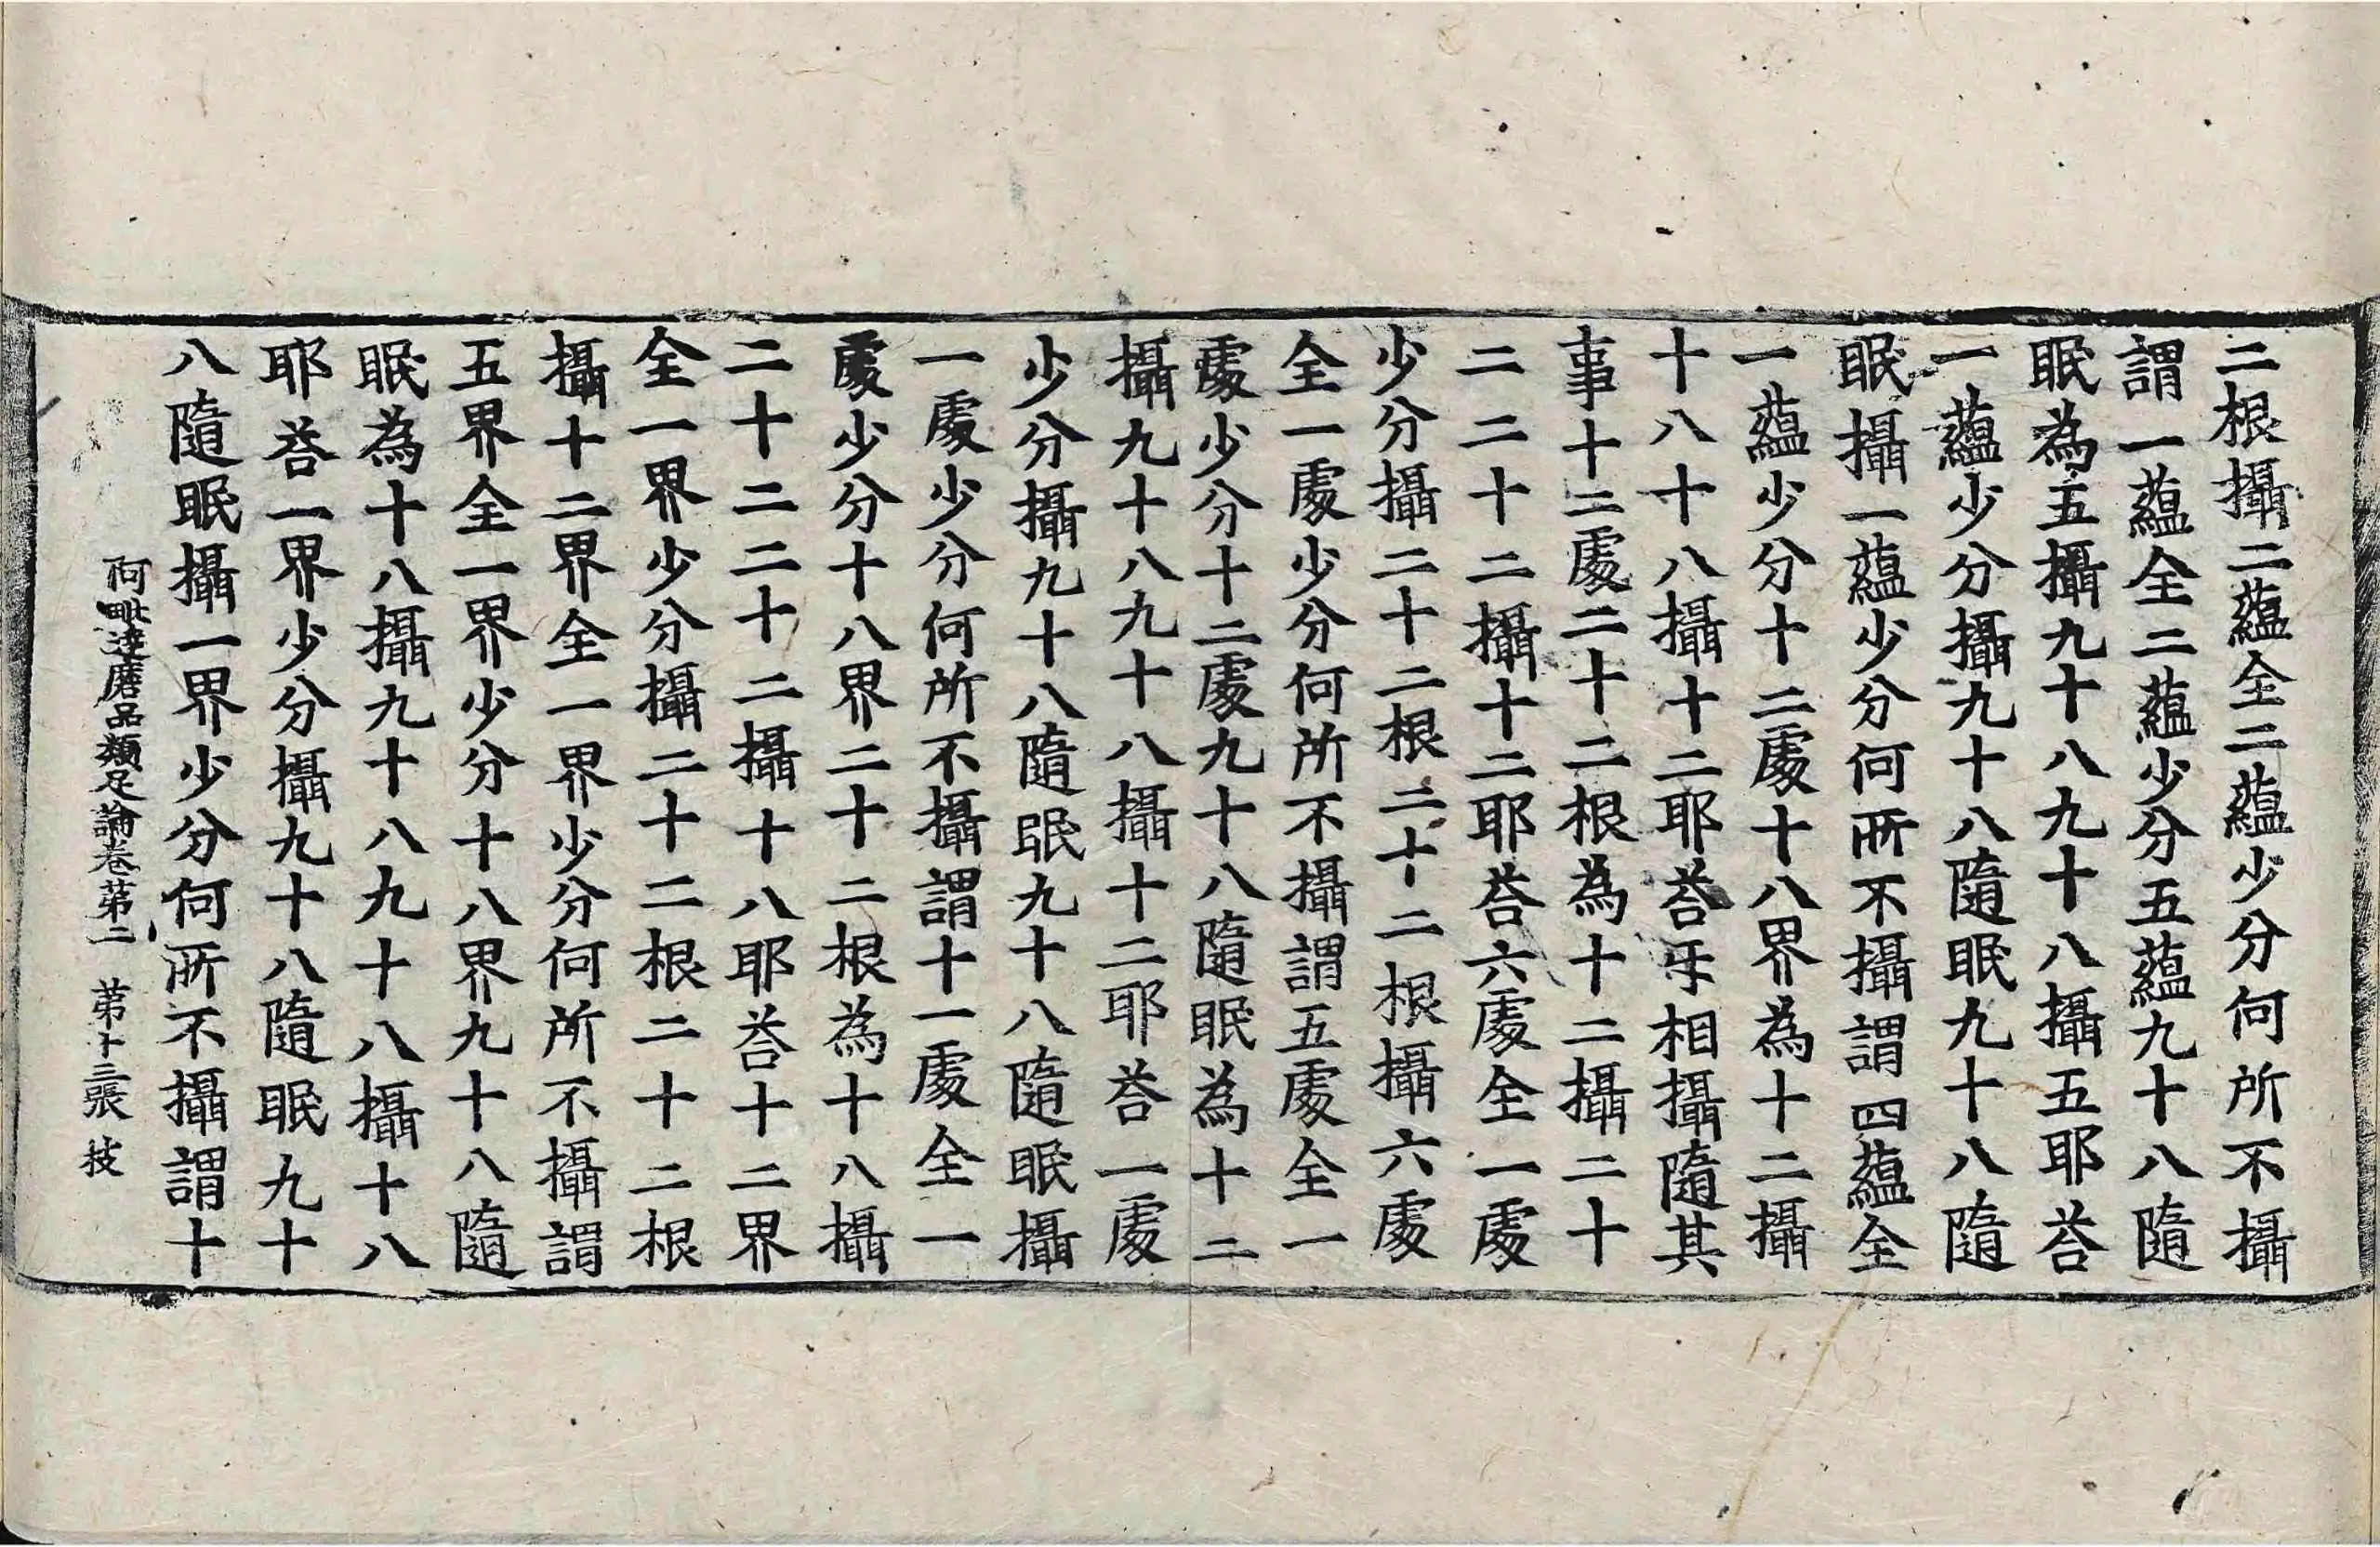 二根攝二蘊全二蘊少分何所不攝
謂一蘊全二蘊少分五蘊九十八隨
眠為五攝九十八九十八攝五耶荅
一蘊少分攝九十八隨眠九十八隨
眠攝一蘊少分何所不攝謂四蘊全
一蘊少分十二處十八界為十二攝
十八十八攝十二耶荅牙相攝隨其
事十二處二十二根為十二攝二十
二二十二攝十二耶荅六處全一處
少分攝二十二根二十二根攝六處
全一處少分何所不攝謂五處全一
處少分十二處九十八隨眠為十二
攝九十八九十八攝十二耶荅一處
少分攝九十八隨眠九十八隨眠攝
一處少分何所不攝謂十一處全一
處少分十八界二十二根為十八攝
二十二二十二攝十八耶荅十二界
全一界少分攝二十二根二十二根
攝十二界全一界少分何所不攝謂
五界全一界少分十八界九十八隨
眠為十八攝九十八九十八攝十八
耶荅一界少分攝九十八隨眠九十
八隨眠攝一界少分何所不攝謂十
阿毗達磨品類足論卷苐二 苐十三張 枝